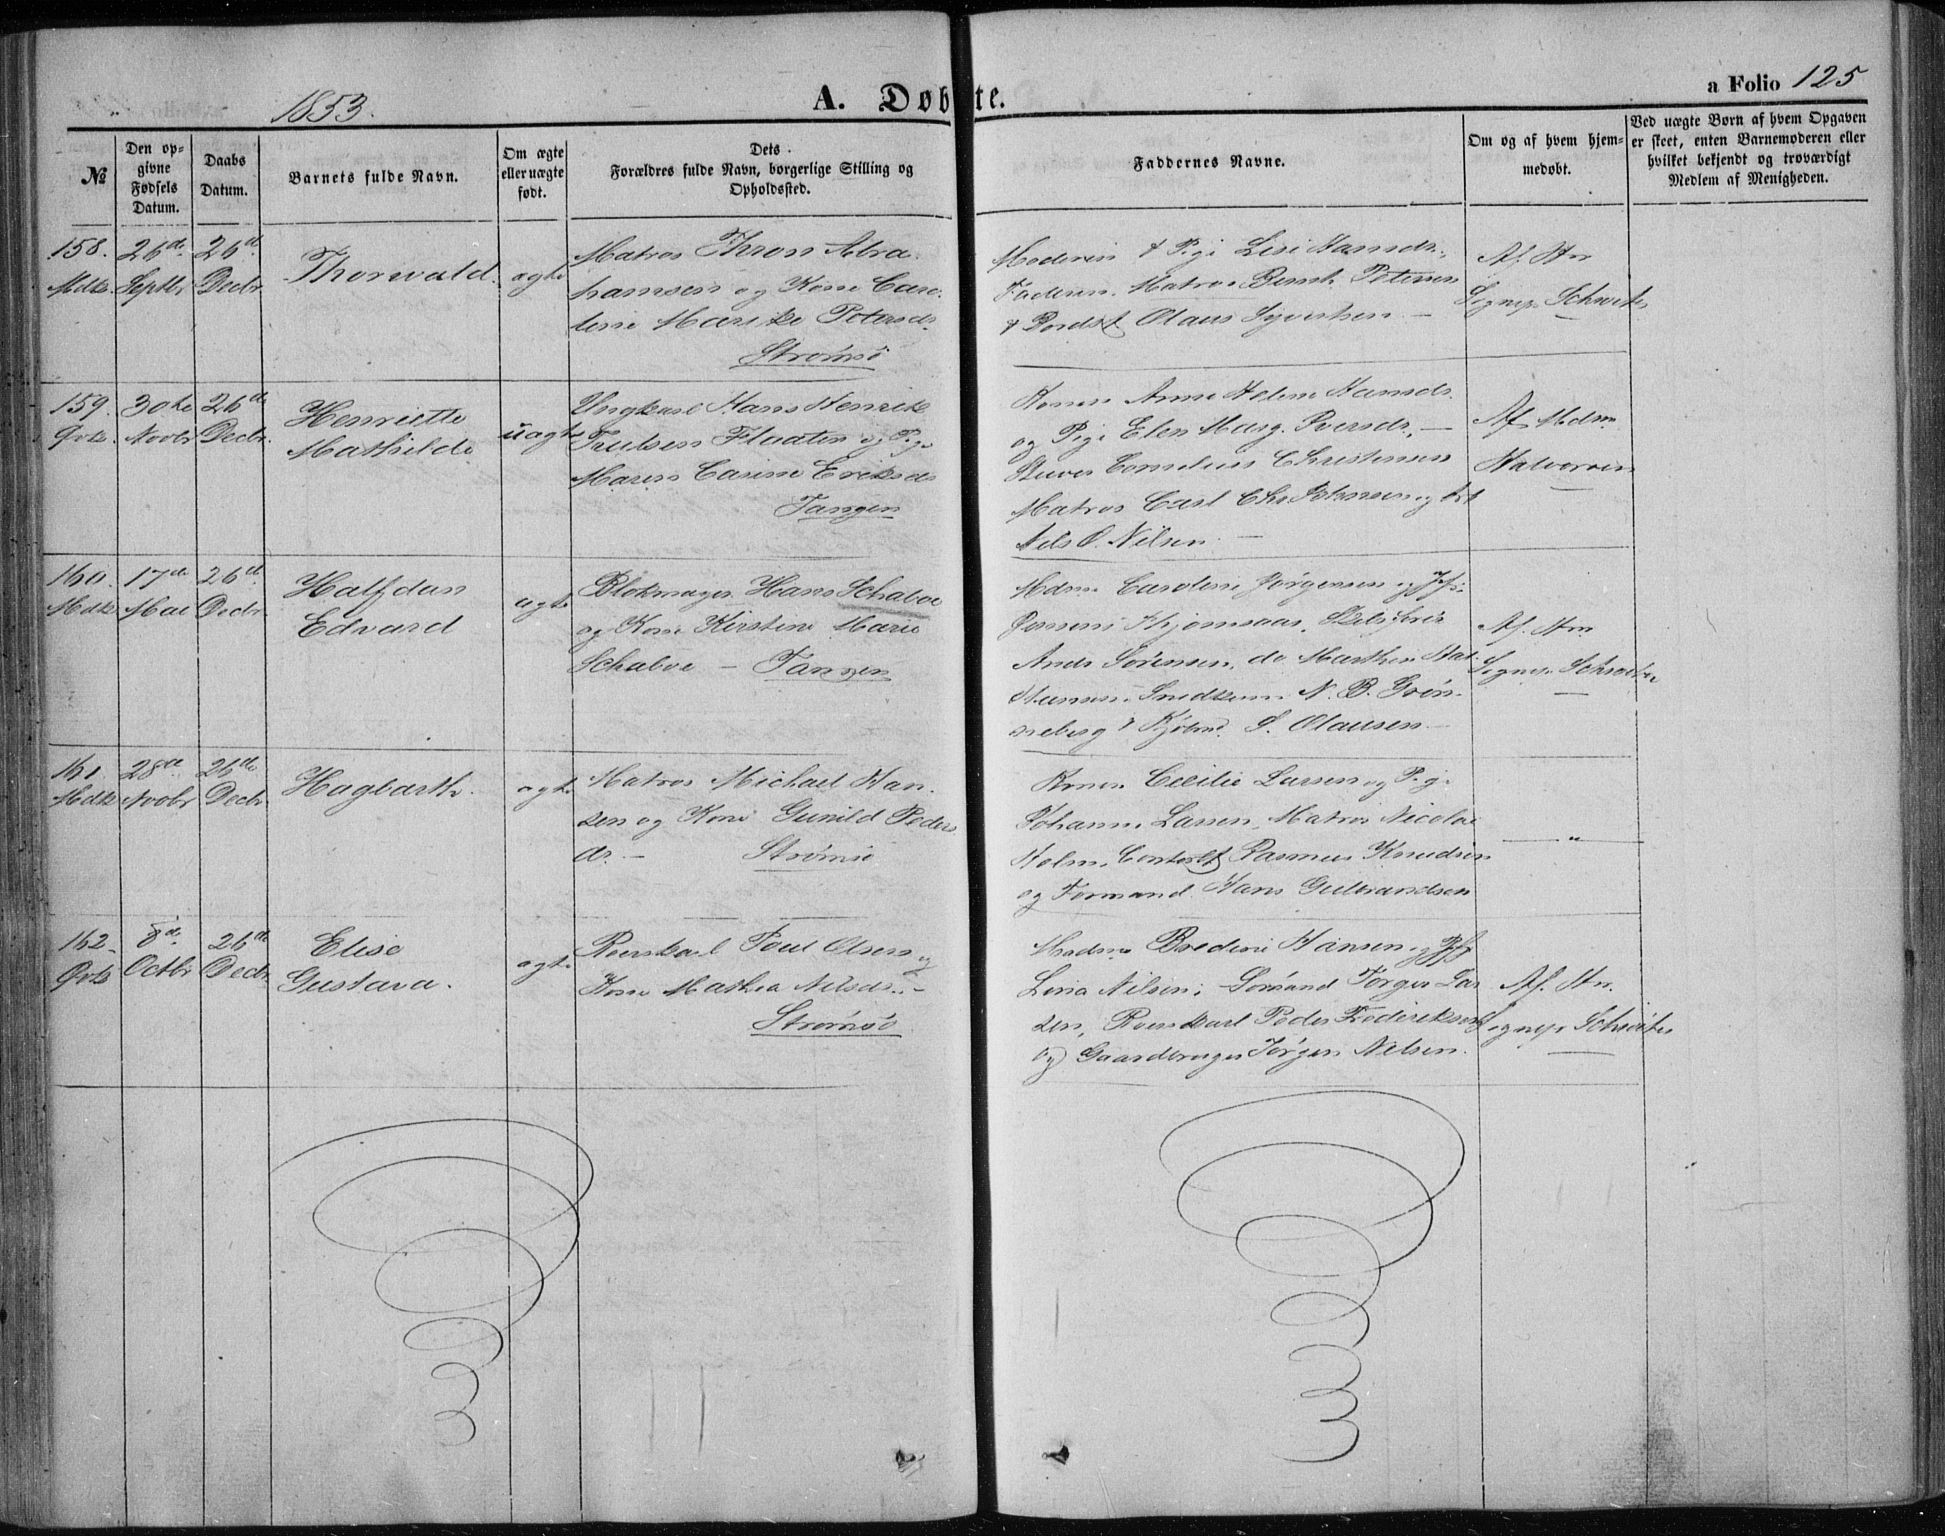 1853.
A. Døbte.
a Folio 125
№
Den op-
givne
Fødsels
Datum.
Daabs
Datum.
Barnets fulde Navn.
Om ægte
eller uægte
født.
Dets
Forældres fulde Navn, borgerlige Stilling og
Opholdssted.
Faddernes Navne.
Om og af hvem hjem-
medøbt.
Ved uægte Børn af hvem Opgaven
er skeet, enten Barnemoderen eller
hvilket bekjendt og troværdigt
Medlem af Menigheden.
158.
Mdk.
26de
Septbr
26de
Decbr
Thorwald.
ægte
Matros Thron Abra-
hamsen og Kone Caro-
line Marike Petersdr.
Strømsø
Moderen & Pige Lise Hansdr.,
Faderen, Matros Bernh. Petersen
& Olaus Syvertsen. —
Af Hr
Sognepr Schwartz
159.
Qvk.
30te
Novbr
26de
Decbr.
Henriette
Mathilde
uægte
Ungkarl Hans Henrik
Trulsen Flaaten og Pige
Maren Carine Eriksdr
Tangen
Konen Anne Helene Hansdr.
og Pige Elen Marg. Iversdr., —
Cornelius Christensen
Matros Carl Chr. og
Nels O. Nilsen. —
Af Mdm.
Halvorsen
160.
Mdk
17de
Mai
26de
Decbr.
Halfdan
Edvard
ægte
Blokmager Hans Schaboe
og Kone Kirstine Marie
Schaboe — Tangen
Mdm. Caroline Jørgensen og Jfr.
Andr Sørensen, do Marthin
Snedkerm. N. B. Grøn-
neberg & Kjøbmd. S. Olausen. —
Af Hr
Sognepr. Schwartz
161.
Mdk
28de
Novbr
26de
Decbr.
Hagbarth.
ægte
Matros Michael Han-
sen og Kone Gunild Peders-
dr. — Strømsø
Konen Cecilie Larsen og Pige
Johanne Larsen, Matros Nicolai
Holm, Rasmus Knudsen
og Formand Hans Gulbrandsen
— " —
162.
Qvk
8de
Octbr
26de
Decbr
Elise
Gustava.
ægte
Roerskarl Poul Olsen og
Kone Mathea Nilsdr. —
Strømsø
Madm Bredine Hansen og Jfr
Lina Nilsen, Sømand Jørgen Lar-
sen, Roerskarl Peder Frederiksen
og Gaardbruger Jørgen Nilsen.
Af Hr.
Sognepr Schwartz